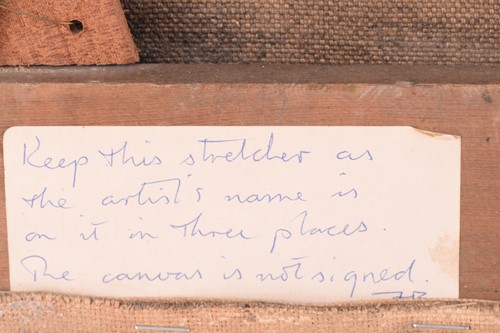 Keep this stretcher as
the artist's name is
on it in three places.
The canvas is not signed.